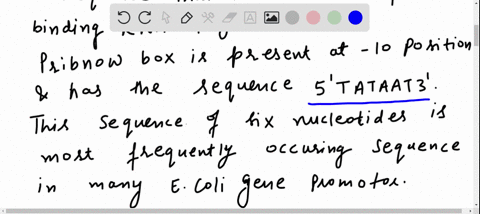 binding
Pribnow box is present at -10 position
& has the sequence 5'TATAAT3'.
This sequence of six nucleotides is
most frequently occuring sequence
in many E. Coli gene promotor.